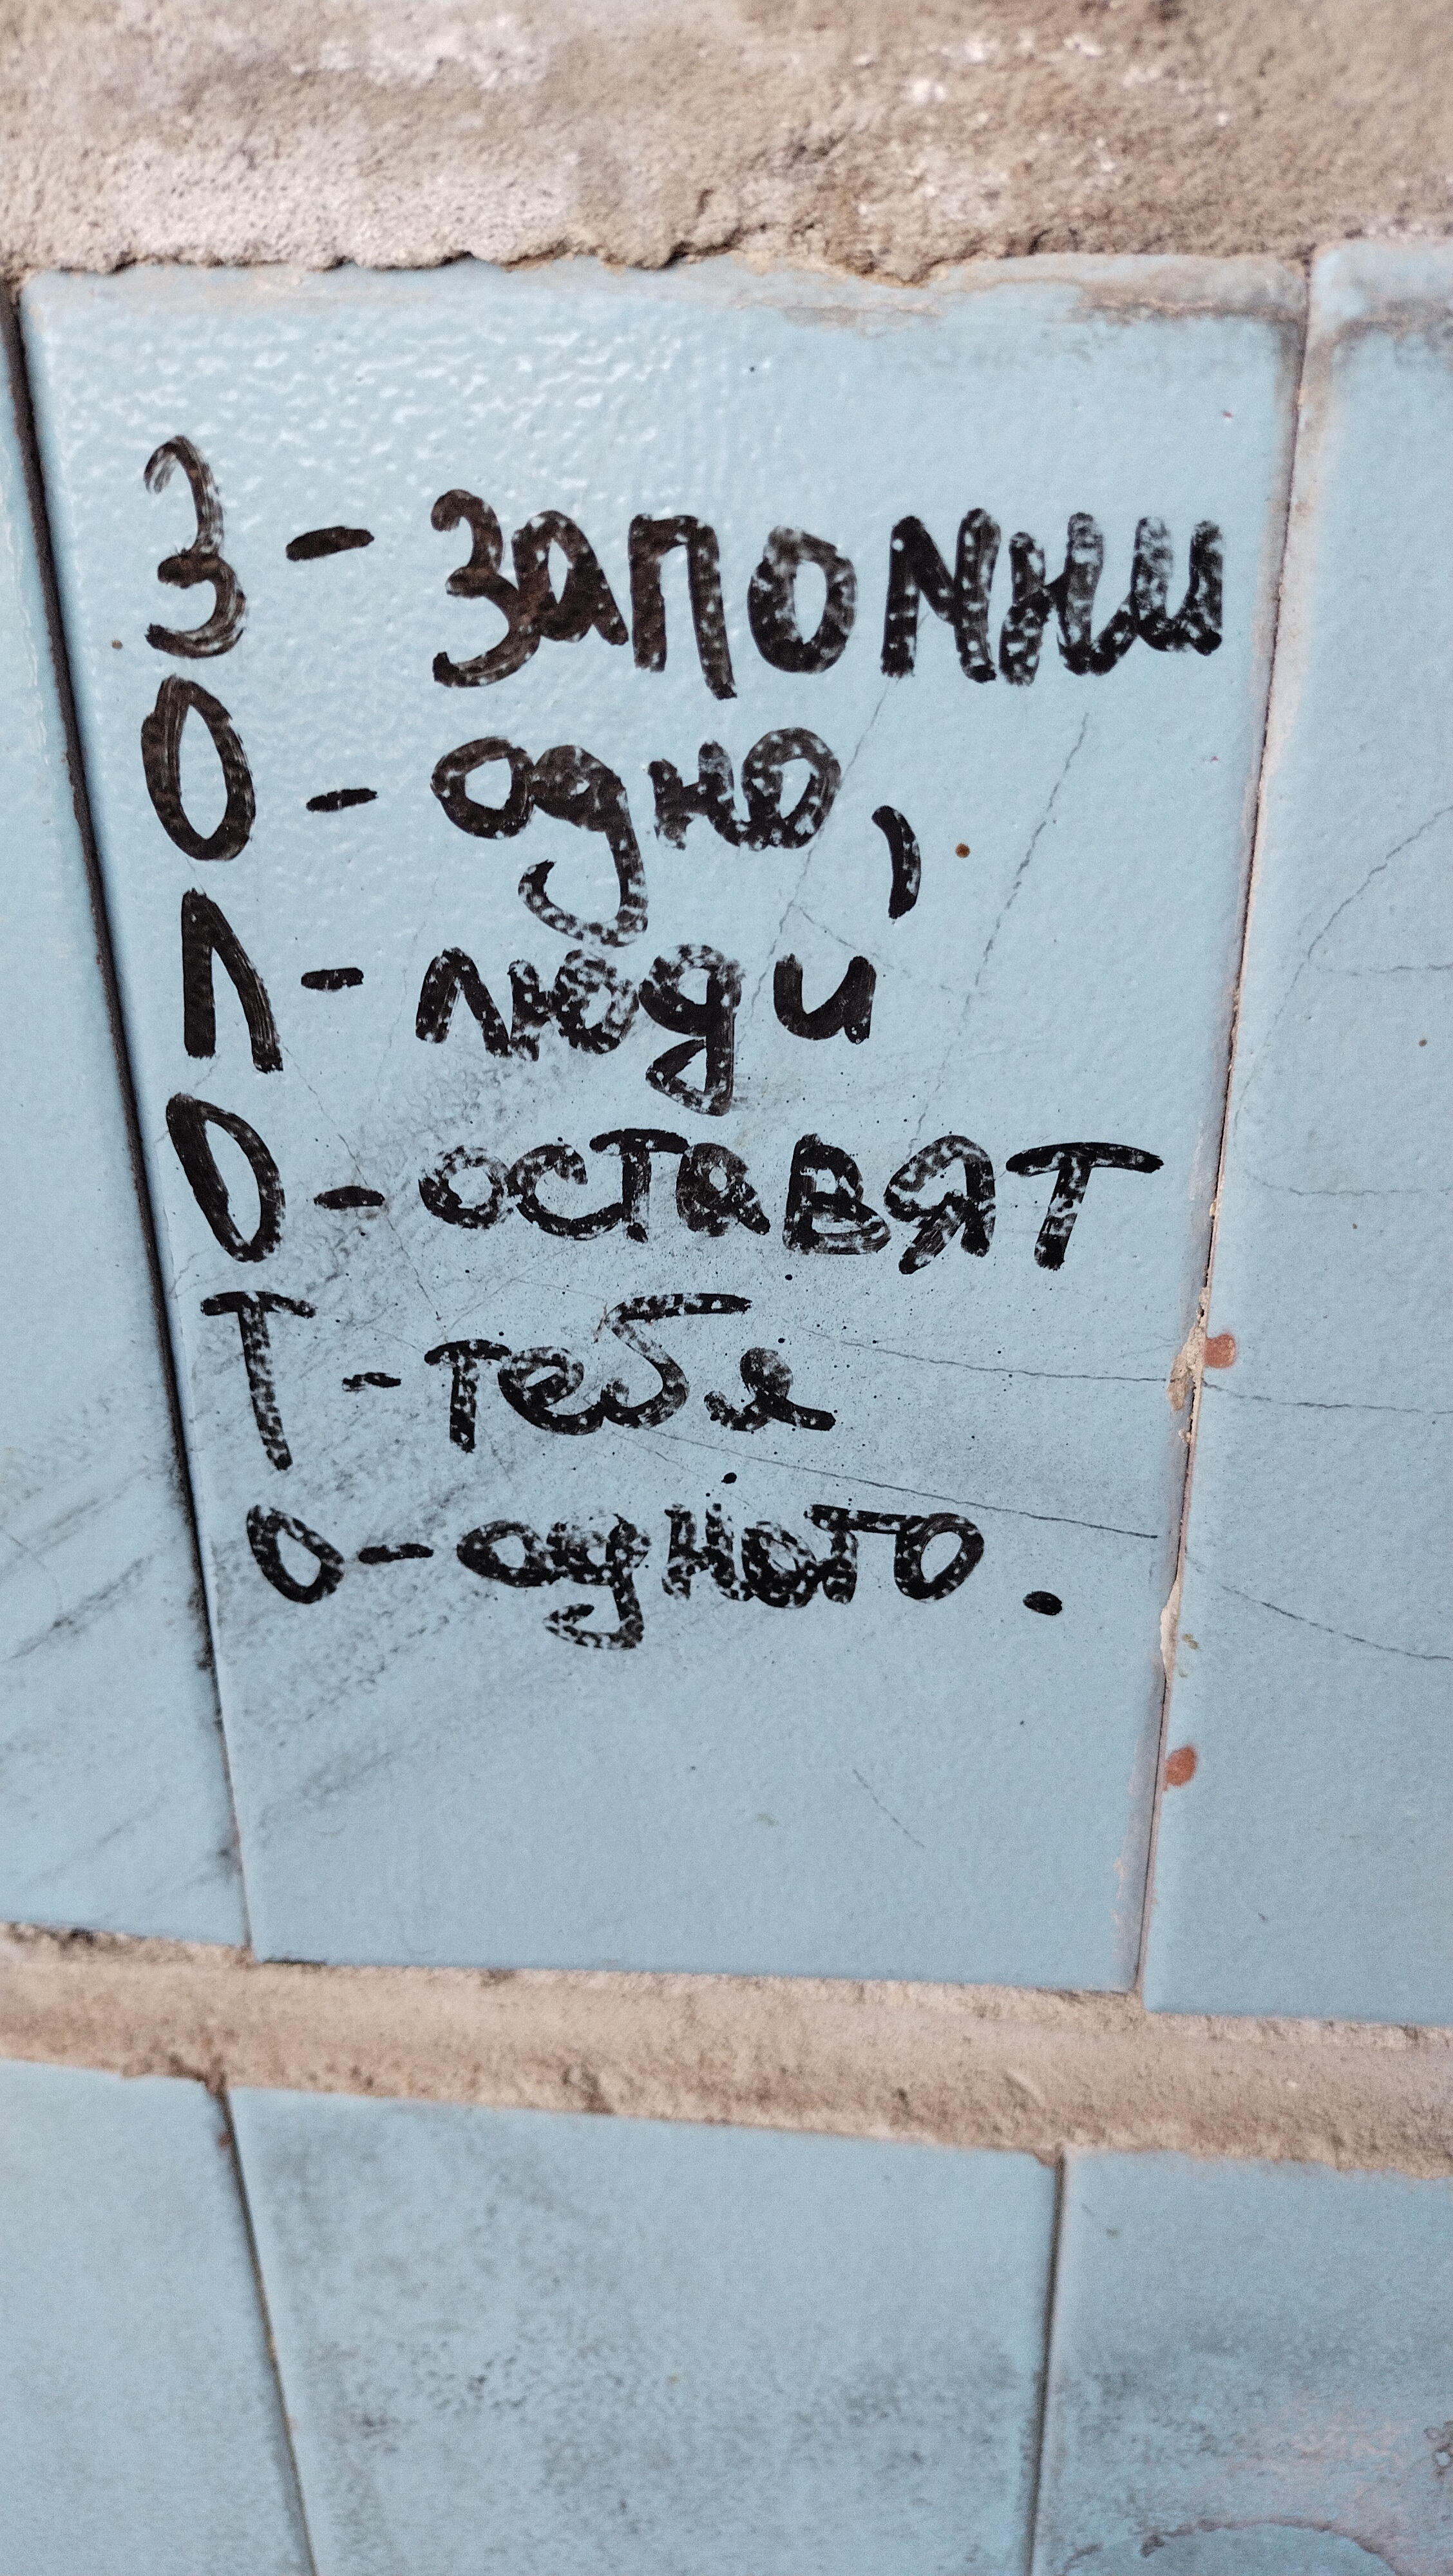 З - запомни
О - одно,
Л - люди
О - оставят
Т - тебя
О - одного.